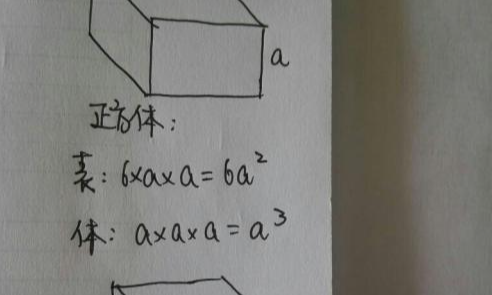 a
正方体:
表: 6×a×a=6a²
体: a×a×a=a³